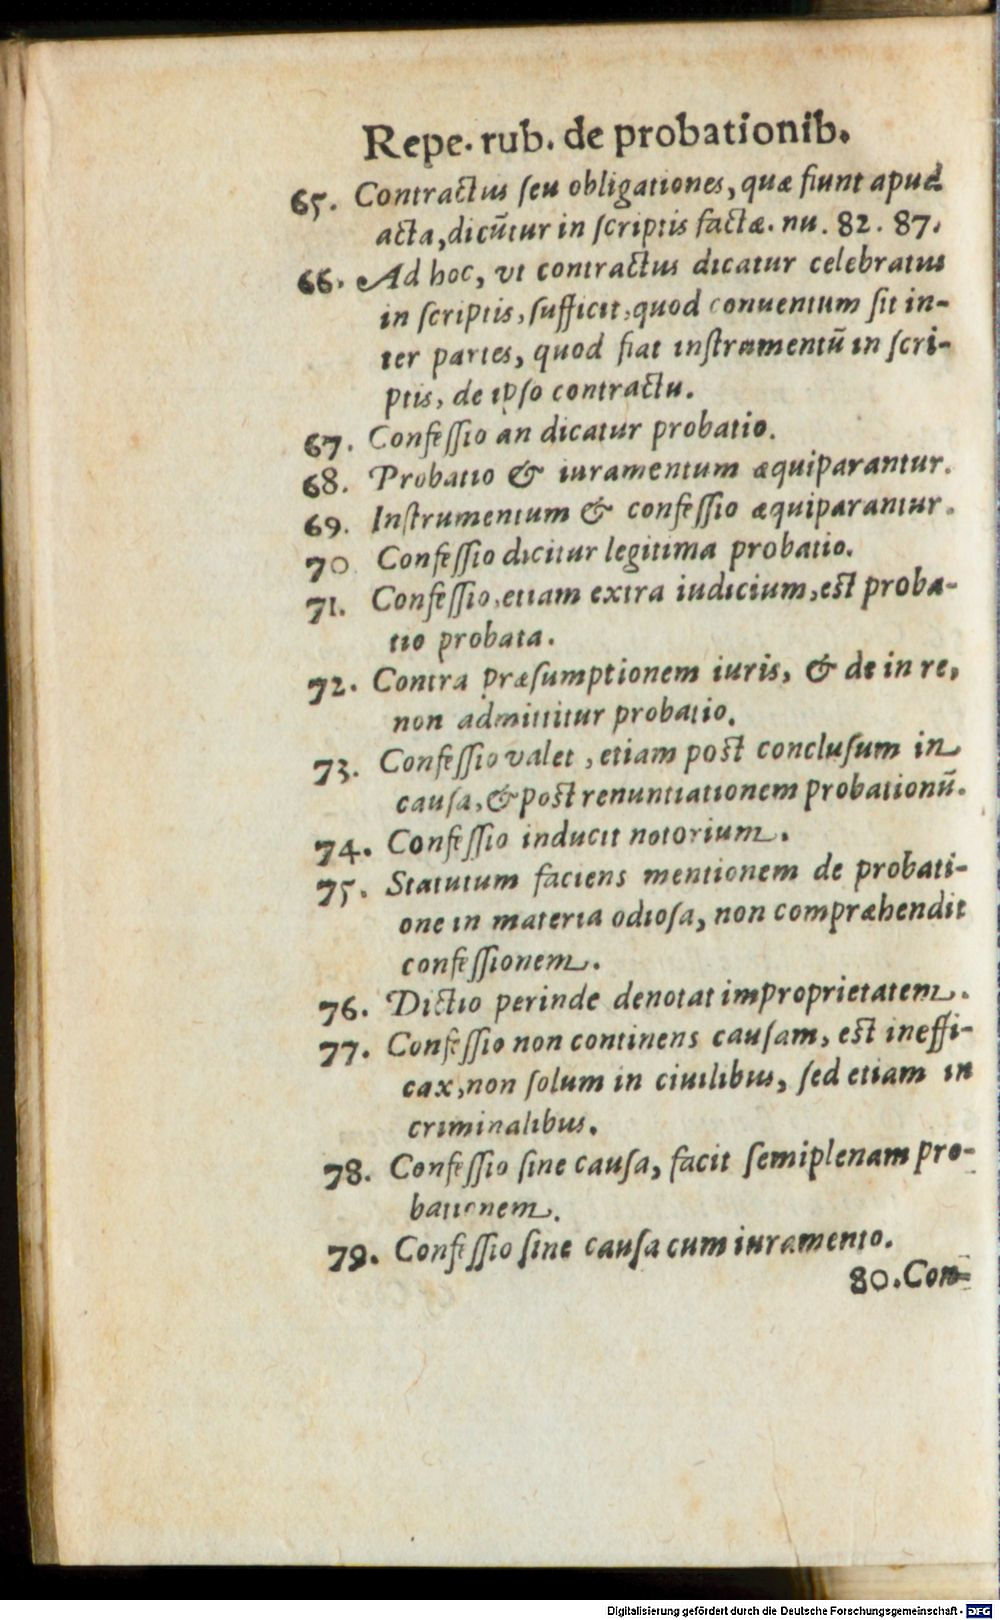 Repe. rub. de probationib.
65. Contractus seu obligationes, quæ fiunt apud
acta, dicūtur in scriptis factæ. nu. 82. 87.
66. Ad hoc, vt contractus dicatur celebratus
in scriptis, sufficit, quod conuentum sit in-
ter partes, quod fiat instrumentū in scri-
ptis, de ipso contractu.
67. Confessio an dicatur probatio.
68. Probatio & iuramentum æquiparantur.
69. Instrumentum & confessio æquiparantur.
70 Confessio dicitur legitima probatio.
71. Confessio, etiam extra iudicium, est proba-
tio probata.
72. Contra præsumptionem iuris, & de in re,
non admittitur probatio.
73. Confessio valet, etiam post conclusum in
causa, & post renuntiationem probationū.
74. Confessio inducit notorium.
75. Statutum faciens mentionem de probati-
one in materia odiosa, non compræhendit
confessionem.
76. Dictio perinde denotat improprietatem.
77. Confessio non continens causam, est ineffi-
cax, non solum in ciuilibus, sed etiam in
criminalibus.
78. Confessio sine causa, facit semiplenam pro-
bationem.
79. Confessio sine causa cum iuramento.
80. Con-
Digitalisierung gefördert durch die Deutsche Forschungsgemeinschaft - DFG